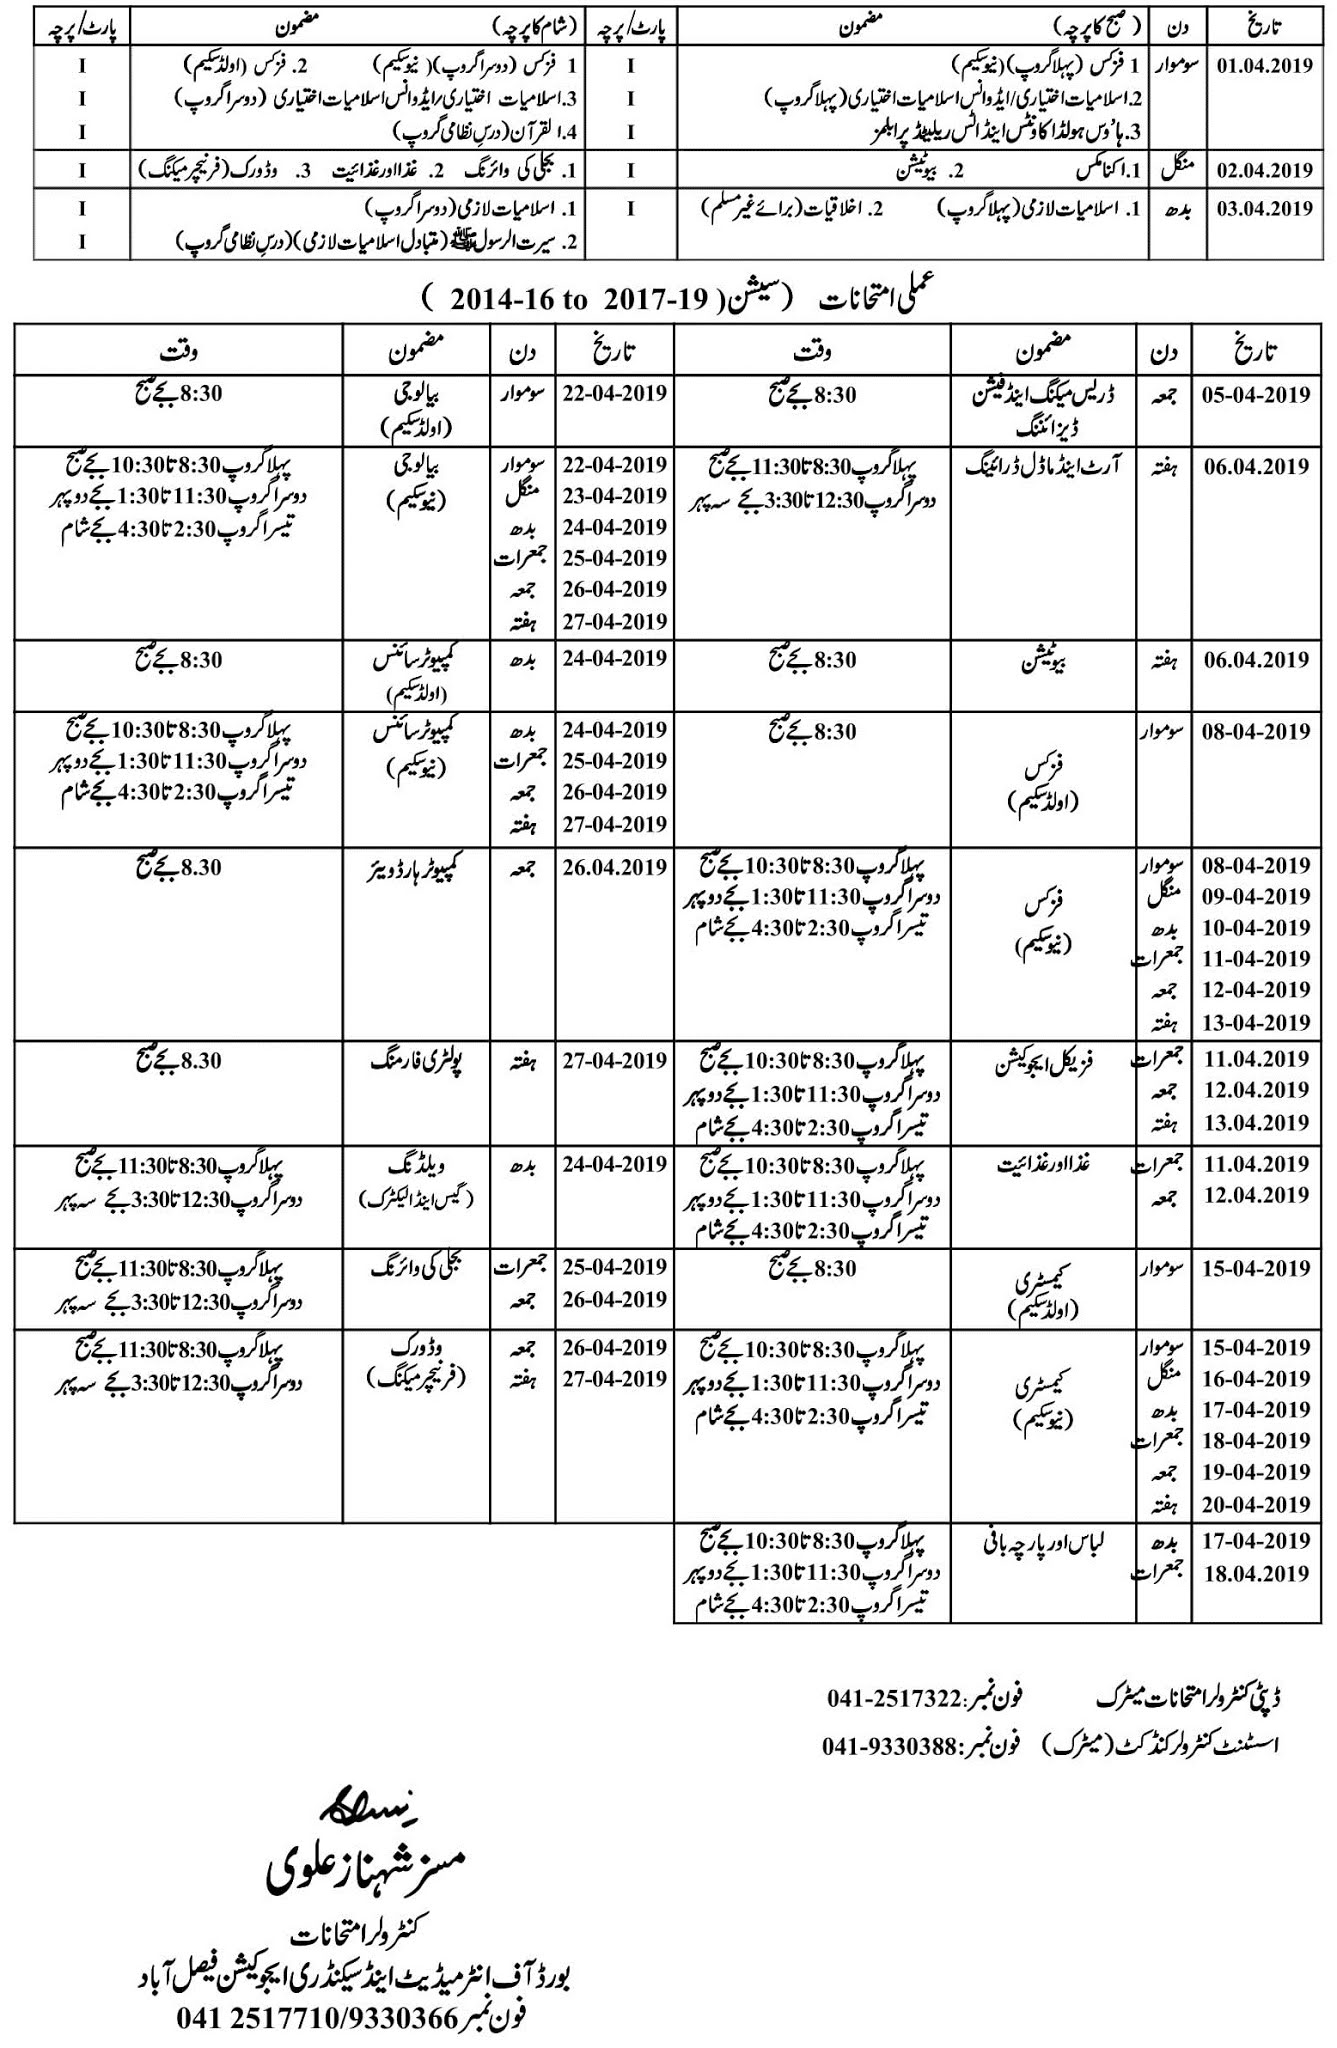 تاریخ دن (صبح کا پرچہ) مضمون پارٹ/پرچہ (شام کا پرچہ) مضمون پارٹ/پرچہ
01.04.2019 سوموار 1 فزکس (پہلا گروپ)(نیو سکیم) I 1 فزکس (دوسرا گروپ)(نیو سکیم) 2. فزکس (اولڈ سکیم) I
2. اسلامیات اختیاری/ایڈوانس اسلامیات اختیاری (پہلا گروپ) I 3. اسلامیات اختیاری/ایڈوانس اسلامیات اختیاری (دوسرا گروپ) I
3. ہاؤس ہولڈ اکاؤنٹس اینڈ اٹس ریلیٹڈ پرابلمز I 4. القرآن (درس نظامی گروپ) I
02.04.2019 منگل 1. اکنامکس 2. بیوٹیشن I 1. بجلی کی وائرنگ 2. غذا اور غذائیت 3. وڈ ورک (فرنیچر میکنگ) I
03.04.2019 بدھ 1. اسلامیات لازمی (پہلا گروپ) 2. اخلاقیات (برائے غیر مسلم) I 1. اسلامیات لازمی (دوسرا گروپ) I
2. سیرت الرسول ﷺ (متبادل اسلامیات لازمی)(درس نظامی گروپ) I
عملی امتحانات (سیشن 2014-16 to 2017-19)
تاریخ دن مضمون وقت تاریخ دن مضمون وقت
05-04-2019 جمعہ ڈریس میکنگ اینڈ فیشن 8:30 بجے صبح 22-04-2019 سوموار بیالوجی 8:30 بجے صبح
ڈیزائننگ (اولڈ سکیم)
06.04.2019 ہفتہ آرٹ اینڈ ماڈل ڈرائینگ پہلا گروپ 8:30 تا 11:30 بجے صبح 22-04-2019 سوموار بیالوجی پہلا گروپ 8:30 تا 10:30 بجے صبح
دوسرا گروپ 12:30 تا 3:30 بجے سہ پہر 23-04-2019 منگل (نیو سکیم) دوسرا گروپ 11:30 تا 1:30 بجے دوپہر
24-04-2019 بدھ تیسرا گروپ 2:30 تا 4:30 بجے شام
25-04-2019 جمعرات
26-04-2019 جمعہ
27-04-2019 ہفتہ
06.04.2019 ہفتہ بیوٹیشن 8:30 بجے صبح 24-04-2019 بدھ کمپیوٹر سائنس 8:30 بجے صبح
(اولڈ سکیم)
08-04-2019 سوموار 8:30 بجے صبح 24-04-2019 بدھ کمپیوٹر سائنس پہلا گروپ 8:30 تا 10:30 بجے صبح
فزکس 25-04-2019 جمعرات (نیو سکیم) دوسرا گروپ 11:30 تا 1:30 بجے دوپہر
(اولڈ سکیم) 26-04-2019 جمعہ تیسرا گروپ 2:30 تا 4:30 بجے شام
27-04-2019 ہفتہ
08-04-2019 سوموار پہلا گروپ 8:30 تا 10:30 بجے صبح 26.04.2019 جمعہ کمپیوٹر ہارڈ ویئر 8.30 بجے صبح
09-04-2019 منگل فزکس دوسرا گروپ 11:30 تا 1:30 بجے دوپہر
10-04-2019 بدھ (نیو سکیم) تیسرا گروپ 2:30 تا 4:30 بجے شام
11-04-2019 جمعرات
12-04-2019 جمعہ
13-04-2019 ہفتہ
11.04.2019 جمعرات فزیکل ایجوکیشن پہلا گروپ 8:30 تا 10:30 بجے صبح 27-04-2019 ہفتہ پولٹری فارمنگ 8.30 بجے صبح
12.04.2019 جمعہ دوسرا گروپ 11:30 تا 1:30 بجے دوپہر
13.04.2019 ہفتہ تیسرا گروپ 2:30 تا 4:30 بجے شام
11.04.2019 جمعرات غذا اور غذائیت پہلا گروپ 8:30 تا 10:30 بجے صبح 24-04-2019 بدھ ویلڈنگ پہلا گروپ 8:30 تا 11:30 بجے صبح
12.04.2019 جمعہ دوسرا گروپ 11:30 تا 1:30 بجے دوپہر (گیس اینڈ الیکٹرک) دوسرا گروپ 12:30 تا 3:30 بجے سہ پہر
تیسرا گروپ 2:30 تا 4:30 بجے شام
15-04-2019 سوموار کیمسٹری 8:30 بجے صبح 25-04-2019 جمعرات بجلی کی وائرنگ پہلا گروپ 8:30 تا 11:30 بجے صبح
(اولڈ سکیم) 26-04-2019 جمعہ دوسرا گروپ 12:30 تا 3:30 بجے سہ پہر
15-04-2019 سوموار پہلا گروپ 8:30 تا 10:30 بجے صبح 26-04-2019 جمعہ وڈ ورک پہلا گروپ 8:30 تا 11:30 بجے صبح
16-04-2019 منگل کیمسٹری دوسرا گروپ 11:30 تا 1:30 بجے دوپہر 27-04-2019 ہفتہ (فرنیچر میکنگ) دوسرا گروپ 12:30 تا 3:30 بجے سہ پہر
17-04-2019 بدھ (نیو سکیم) تیسرا گروپ 2:30 تا 4:30 بجے شام
18-04-2019 جمعرات
19-04-2019 جمعہ
20-04-2019 ہفتہ
17-04-2019 بدھ لباس اور پارچہ بافی پہلا گروپ 8:30 تا 10:30 بجے صبح
18.04.2019 جمعرات دوسرا گروپ 11:30 تا 1:30 بجے دوپہر
تیسرا گروپ 2:30 تا 4:30 بجے شام
ڈپٹی کنٹرولر امتحانات میٹرک فون نمبر: 041-2517322
اسسٹنٹ کنٹرولر کنڈکٹ (میٹرک) فون نمبر: 041-9330388
مسز شہناز علوی
کنٹرولر امتحانات
بورڈ آف انٹرمیڈیٹ اینڈ سیکنڈری ایجوکیشن فیصل آباد
فون نمبر 041 2517710/9330366